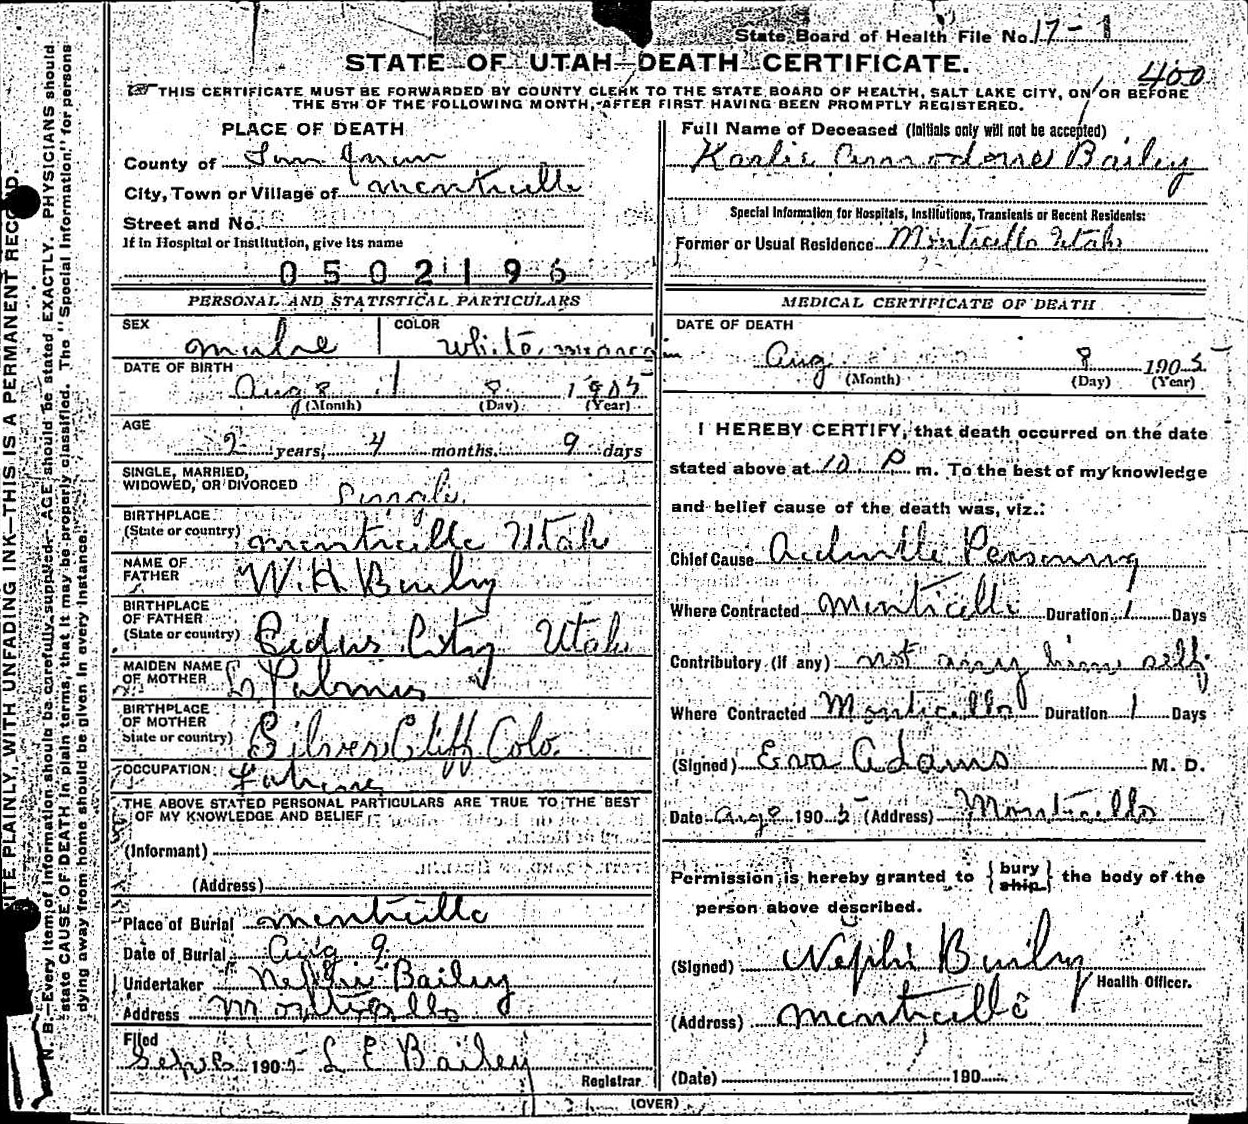 State Board of Health File No. 17-1
STATE OF UTAH DEATH CERTIFICATE.
400
THIS CERTIFICATE MUST BE FORWARDED BY COUNTY CLERK TO THE STATE BOARD OF HEALTH, SALT LAKE CITY, ON OR BEFORE
THE 5TH OF THE FOLLOWING MONTH, AFTER FIRST HAVING BEEN PROMPTLY REGISTERED.
PLACE OF DEATH
County of San Juan
City, Town or Village of Monticello
Street and No.
If in Hospital or Institution, give its name
0502196
PERSONAL AND STATISTICAL PARTICULARS
SEX
COLOR
male
white
DATE OF BIRTH
Aug 8 8 1905
(Month) (Day) (Year)
AGE
2 years, 4 months. 9 days
SINGLE, MARRIED,
WIDOWED, OR DIVORCED single
BIRTHPLACE
(State or country) Monticello Utah
NAME OF
FATHER W. H. Baily
BIRTHPLACE
OF FATHER
(State or country) Cedar City Utah
MAIDEN NAME
OF MOTHER
BIRTHPLACE
OF MOTHER
State or country) Silver Cliff Colo.
OCCUPATION
THE ABOVE STATED PERSONAL PARTICULARS ARE TRUE TO THE BEST
OF MY KNOWLEDGE AND BELIEF
(Informant)
(Address)
Place of Burial Monticello
Date of Burial Aug 9
Undertaker Nephi Bailey
Address Monticello
Filed
Sep 8 1905 L E Bailey
Registrar
Full Name of Deceased (Initials only will not be accepted)
Karlie Bailey
Special Information for Hospitals, Institutions, Transients or Recent Residents:
Former or Usual Residence Monticello Utah
MEDICAL CERTIFICATE OF DEATH
DATE OF DEATH
Aug 8 1905
(Month) (Day) (Year)
I HEREBY CERTIFY, that death occurred on the date
stated above at 10 P m. To the best of my knowledge
and belief cause of the death was, viz.:
Chief Cause
Where Contracted Monticello Duration 1 Days
Contributory (if any) not any him self
Where Contracted Monticello Duration 1 Days
(Signed) Eva Adams M. D.
Date Aug 8 1905 (Address) Monticello
Permission is hereby granted to {bury ship} the body of the
person above described.
(Signed) Nephi Baily
Health Officer.
(Address) Monticello
(Date) 190
(OVER)
WRITE PLAINLY, WITH UNFADING INK—THIS IS A PERMANENT RECORD.
N. B.—Every item of information should be carefully supplied. AGE should be stated EXACTLY. PHYSICIANS should
state CAUSE OF DEATH in plain terms, that it may be properly classified. The "Special Information" for persons
dying away from home should be given in every instance.